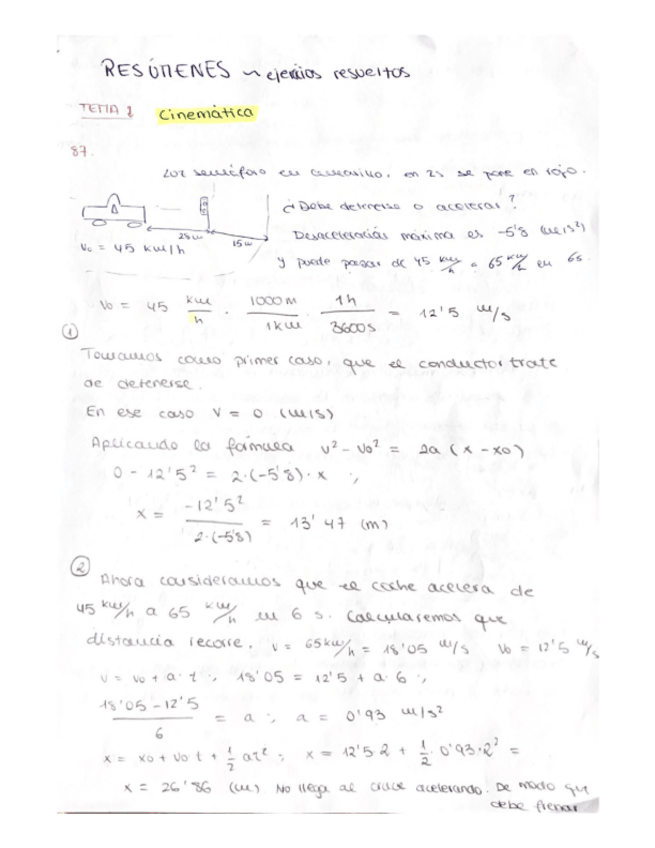 RESÚMENES ~ ejercicios resueltos
TEMA 1 Cinemática
87.
Luz semáforo en amarillo, en 2s se pone en rojo.
¿Debe detenerse o acelerar?
28m
15m
Desaceleración máxima es -5'8 (m/s²)
V₀ = 45 km/h
y puede pasar de 45 km/h a 65 km/h en 6s.
V₀ = 45 km/h · 1000 m/1 km · 1h/3600s = 12'5 m/s
①
Tomamos como primer caso, que el conductor trate
de detenerse.
En ese caso V = 0 (m/s)
Aplicando la fórmula v² - v₀² = 2a (x - x₀)
0 - 12'5² = 2·(-5'8) · x ;,
x = -12'5² / 2·(-5'8) = 13'47 (m)
②
Ahora consideramos que el coche acelera de
45 km/h a 65 km/h en 6 s. Calcularemos que
distancia recorre. v = 65 km/h = 18'05 m/s V₀ = 12'5 m/s
v = v₀ + a · t ;, 18'05 = 12'5 + a · 6 ;,
18'05 - 12'5 / 6 = a ;, a = 0'93 m/s²
x = x₀ + v₀ t + 1/2 at² ; x = 12'5·2 + 1/2 · 0'93·2² =
x = 26'86 (m) No llega al cruce acelerando. De modo que
debe frenar